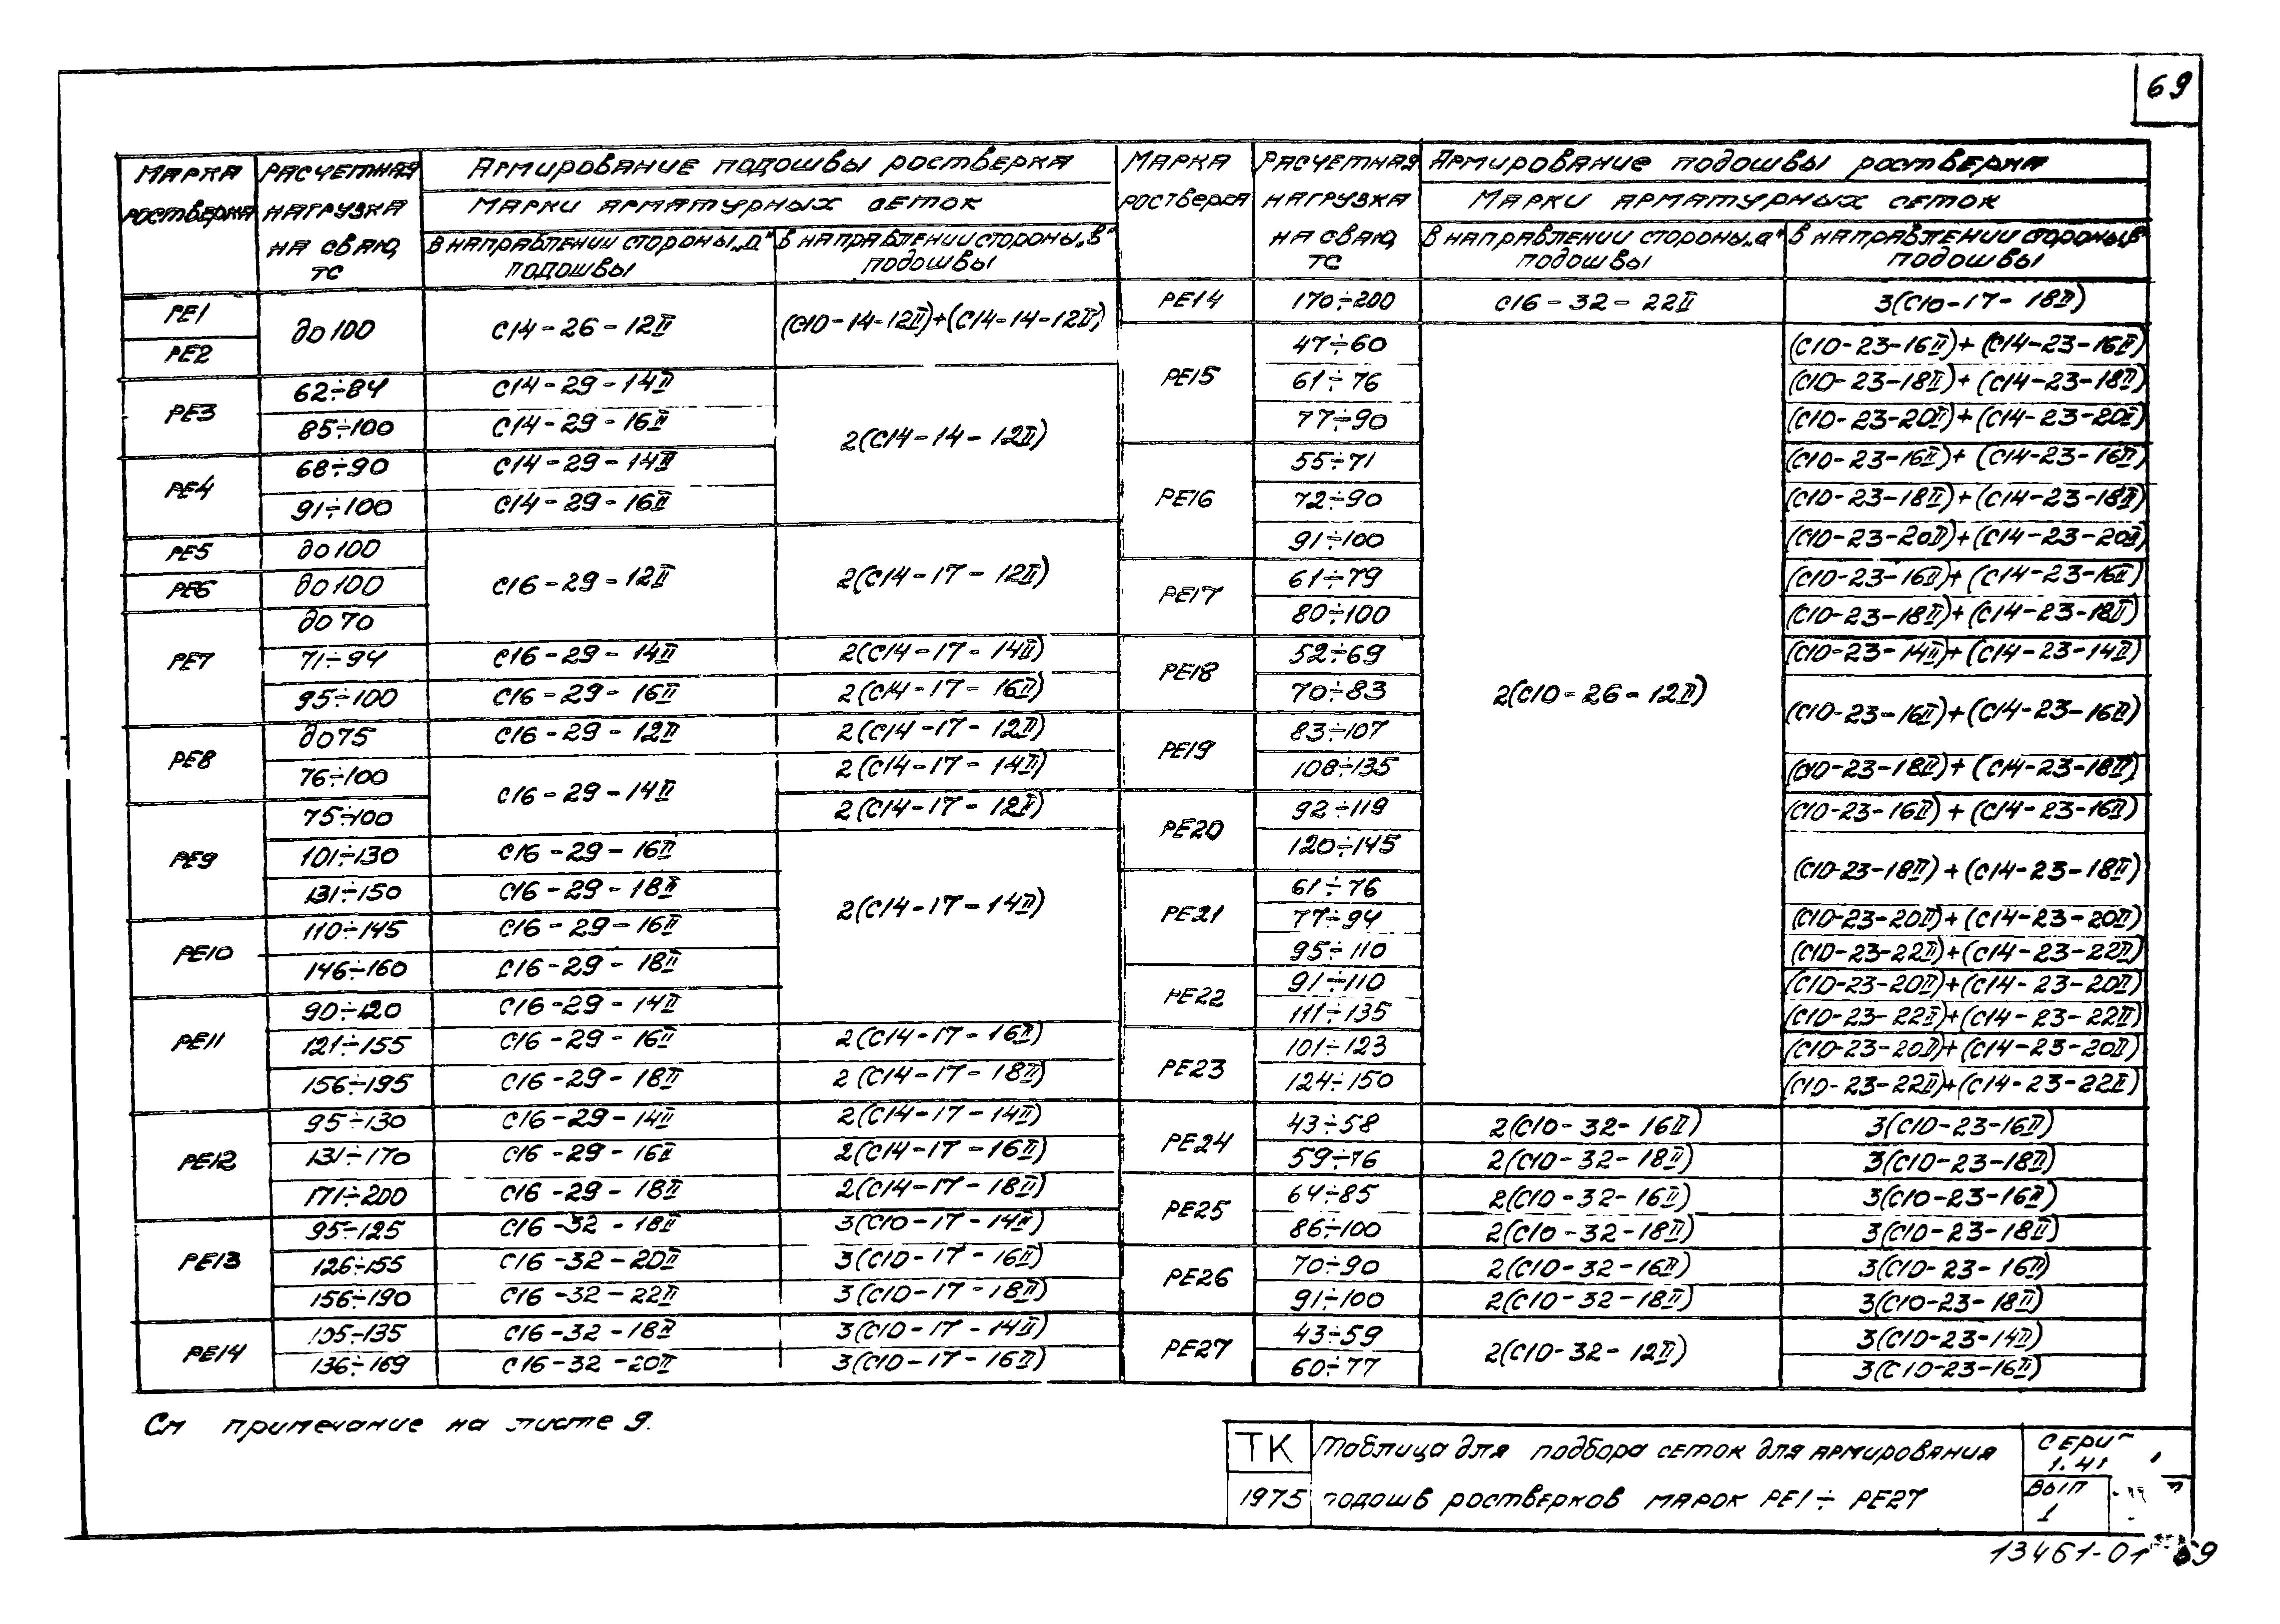 69
МАРКА РОСТВЕРКА | РАСЧЕТНАЯ НАГРУЗКА НА СВАЮ, ТС | Армирование подошвы ростверка
Марки арматурных сеток
в направлении стороны „а“ подошвы | в направлении стороны „в“ подошвы
РЕ1 | до 100 | С14-26-12II | (С10-14-12II)+(С14-14-12II)
РЕ2
РЕ3 | 62÷84 | С14-29-14II | 2(С14-14-12II)
85÷100 | С14-29-16II
РЕ4 | 68÷90 | С14-29-14II
91÷100 | С14-29-16II
РЕ5 | до 100 | С16-29-12II | 2(С14-17-12II)
РЕ6 | до 100
РЕ7 | до 70
71÷94 | С16-29-14II | 2(С14-17-14II)
95÷100 | С16-29-16II | 2(С14-17-16II)
РЕ8 | до 75 | С16-29-12II | 2(С14-17-12II)
76÷100 | С16-29-14II | 2(С14-17-14II)
РЕ9 | 75÷100 | 2(С14-17-12II)
101÷130 | С16-29-16II | 2(С14-17-14II)
131÷150 | С16-29-18II
РЕ10 | 110÷145 | С16-29-16II
146÷160 | С16-29-18II
РЕ11 | 90÷120 | С16-29-14II
121÷155 | С16-29-16II | 2(С14-17-16II)
156÷195 | С16-29-18II | 2(С14-17-18II)
РЕ12 | 95÷130 | С16-29-14II | 2(С14-17-14II)
131÷170 | С16-29-16II | 2(С14-17-16II)
171÷200 | С16-29-18II | 2(С14-17-18II)
РЕ13 | 95÷125 | С16-32-18II | 3(С10-17-14II)
126÷155 | С16-32-20II | 3(С10-17-16II)
156÷190 | С16-32-22II | 3(С10-17-18II)
РЕ14 | 105÷135 | С16-32-18II | 3(С10-17-14II)
136÷169 | С16-32-20II | 3(С10-17-16II)
МАРКА РОСТВЕРКА | РАСЧЕТНАЯ НАГРУЗКА НА СВАЮ, ТС | Армирование подошвы ростверка
Марки арматурных сеток
в направлении стороны „а“ подошвы | в направлении стороны „в“ подошвы
РЕ14 | 170÷200 | С16-32-22II | 3(С10-17-18II)
РЕ15 | 47÷60 | 2(С10-26-12II) | (С10-23-16II)+(С14-23-16II)
61÷76 | (С10-23-18II)+(С14-23-18II)
77÷90 | (С10-23-20II)+(С14-23-20II)
РЕ16 | 55÷71 | (С10-23-16II)+(С14-23-16II)
72÷90 | (С10-23-18II)+(С14-23-18II)
91÷100 | (С10-23-20II)+(С14-23-20II)
РЕ17 | 61÷79 | (С10-23-16II)+(С14-23-16II)
80÷100 | (С10-23-18II)+(С14-23-18II)
РЕ18 | 52÷69 | (С10-23-14II)+(С14-23-14II)
70÷83 | (С10-23-16II)+(С14-23-16II)
РЕ19 | 83÷107
108÷135 | (С10-23-18II)+(С14-23-18II)
РЕ20 | 92÷119 | (С10-23-16II)+(С14-23-16II)
120÷145 | (С10-23-18II)+(С14-23-18II)
РЕ21 | 61÷76
77÷94 | (С10-23-20II)+(С14-23-20II)
95÷110 | (С10-23-22II)+(С14-23-22II)
РЕ22 | 91÷110 | (С10-23-20II)+(С14-23-20II)
111÷135 | (С10-23-22II)+(С14-23-22II)
РЕ23 | 101÷123 | (С10-23-20II)+(С14-23-20II)
124÷150 | (С10-23-22II)+(С14-23-22II)
РЕ24 | 43÷58 | 2(С10-32-16II) | 3(С10-23-16II)
59÷76 | 2(С10-32-18II) | 3(С10-23-18II)
РЕ25 | 64÷85 | 2(С10-32-16II) | 3(С10-23-16II)
86÷100 | 2(С10-32-18II) | 3(С10-23-18II)
РЕ26 | 70÷90 | 2(С10-32-16II) | 3(С10-23-16II)
91÷100 | 2(С10-32-18II) | 3(С10-23-18II)
РЕ27 | 43÷59 | 2(С10-32-12II) | 3(С10-23-14II)
60÷77 | 3(С10-23-16II)
См примечание на листе 9.
ТК
1975
Таблица для подбора сеток для армирования
подошв ростверков марок РЕ1÷РЕ27
ВЫП
1
13461-01 69